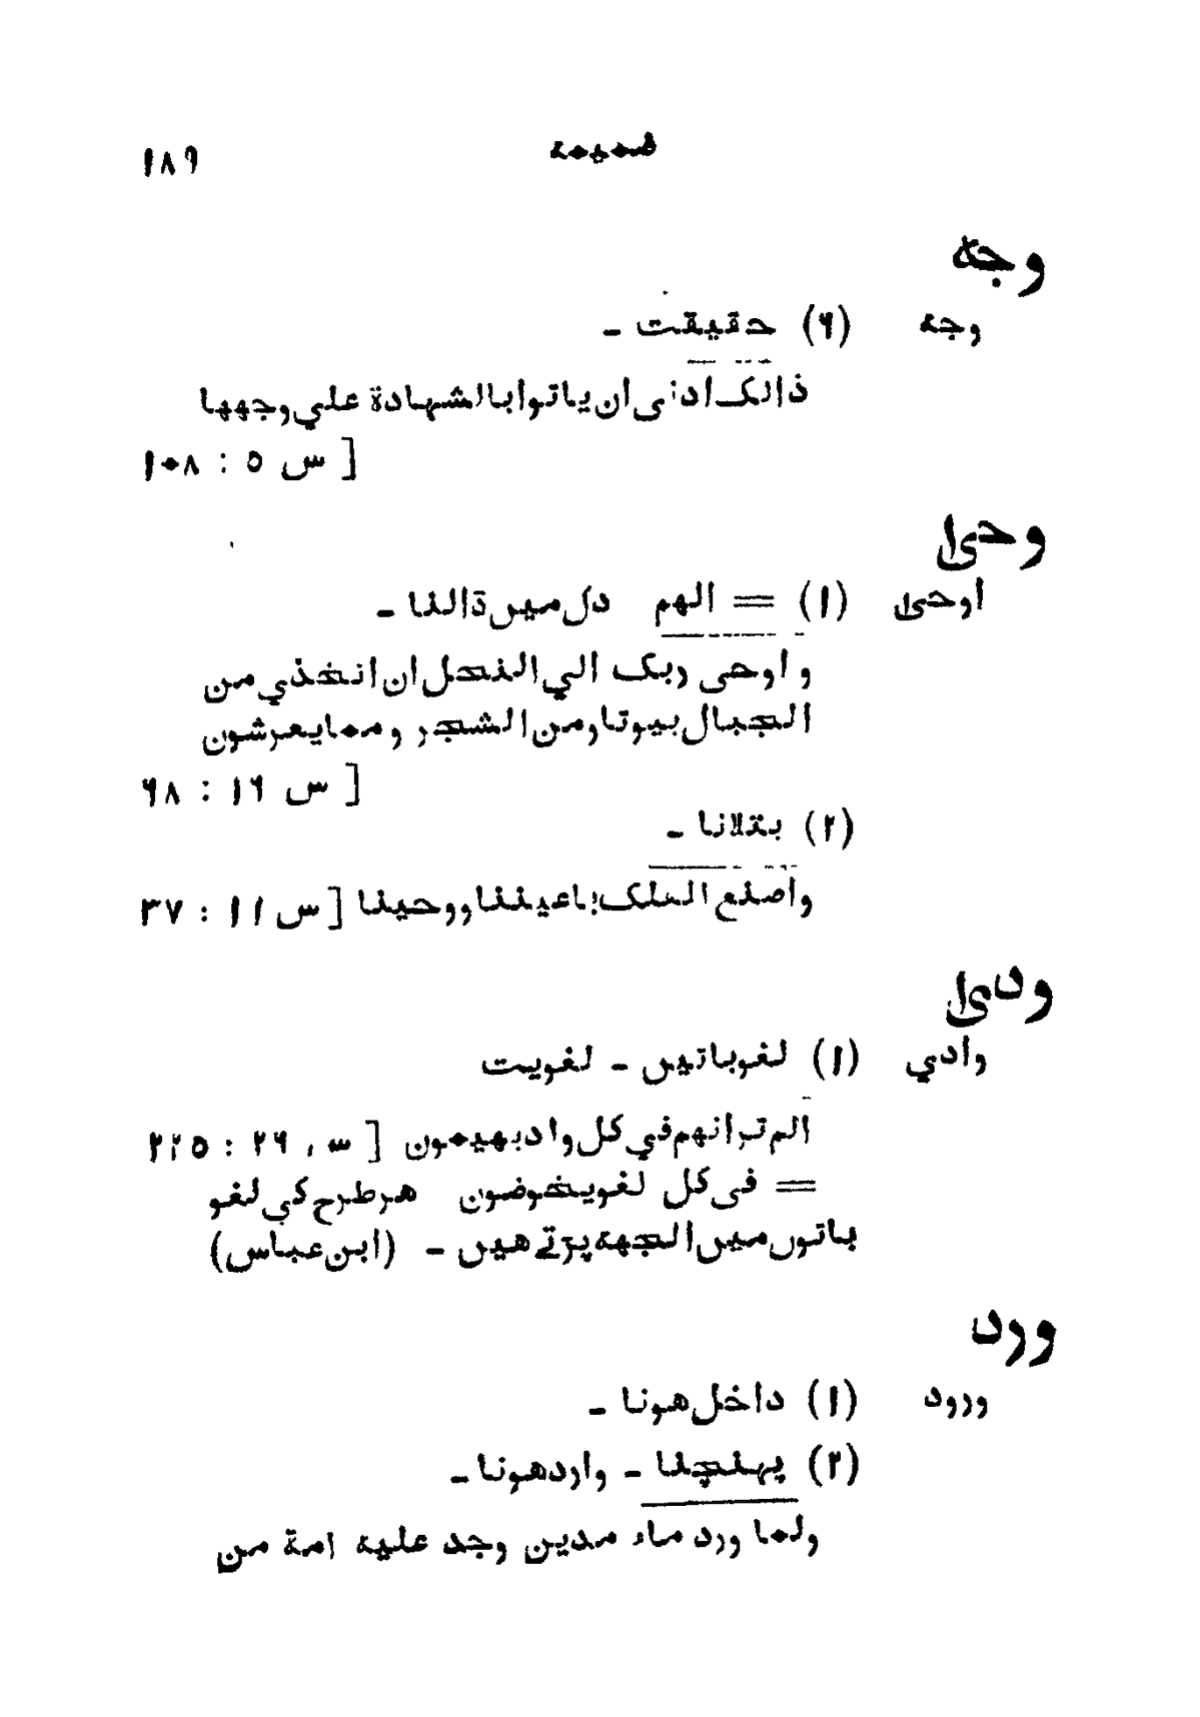 ضمیمه ۱۸۹
وجه
وجه (۶) حقیقت ۔
ذالک ادنی ان یاتوا بالشهادة علي وجهها
[ س ۵ : ۱۰۸
وحیٰ
اوحیٰ (۱) = الهم دل میں ڈالنا ۔
واوحی ربک الي النحل ان اتخذي من
الجبال بیوتا ومن الشجر ومما یعرشون
[ س ۱۶ : ۶۸
(۲) بتلانا ۔
واصنع الفلک باعیننا ووحینا [ س ۱۱ : ۳۷
ودیٰ
وادي (۱) لغو باتیں ۔ لغویت
الم تر انهم في کل واد یهیمون [ س ۲۶ : ۲۲۵
= فی کل لغو یخوضون هر طرح کي لغو
باتوں میں الجهه پڑتے هیں ۔ (ابن عباس)
ورد
ورود (۱) داخل هونا ۔
(۲) پہنچنا ۔ وارد هونا ۔
ولما ورد ماء مدین وجد علیه امة من